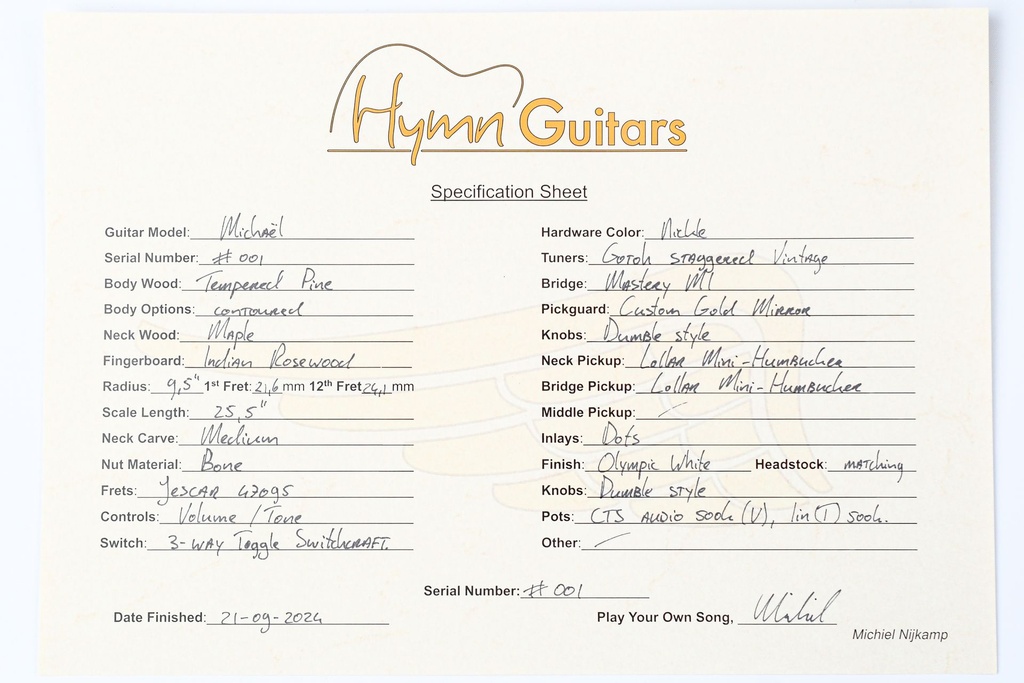 Hymn Guitars
Specification Sheet
Guitar Model: Michaël
Serial Number: # 001
Body Wood: Tempered Pine
Body Options: contoured
Neck Wood: Maple
Fingerboard: Indian Rosewood
Radius: 9,5" 1st Fret: 21,6 mm 12th Fret 24,1 mm
Scale Length: 25,5"
Neck Carve: Medium
Nut Material: Bone
Frets: Jescar 47095
Controls: Volume / Tone
Switch: 3-way Toggle Switchcraft.
Hardware Color: Nickle
Tuners: Gotoh staggered Vintage
Bridge: Mastery M1
Pickguard: Custom Gold Mirror
Knobs: Dumble style
Neck Pickup: Lollar Mini-Humbucker
Bridge Pickup: Lollar Mini-Humbucker
Middle Pickup: /
Inlays: Dots
Finish: Olympic White Headstock: matching
Knobs: Dumble style
Pots: CTS audio 500k (V), lin(T) 500k.
Other: /
Serial Number: # 001
Date Finished: 21-09-2024
Play Your Own Song, Michiel
Michiel Nijkamp